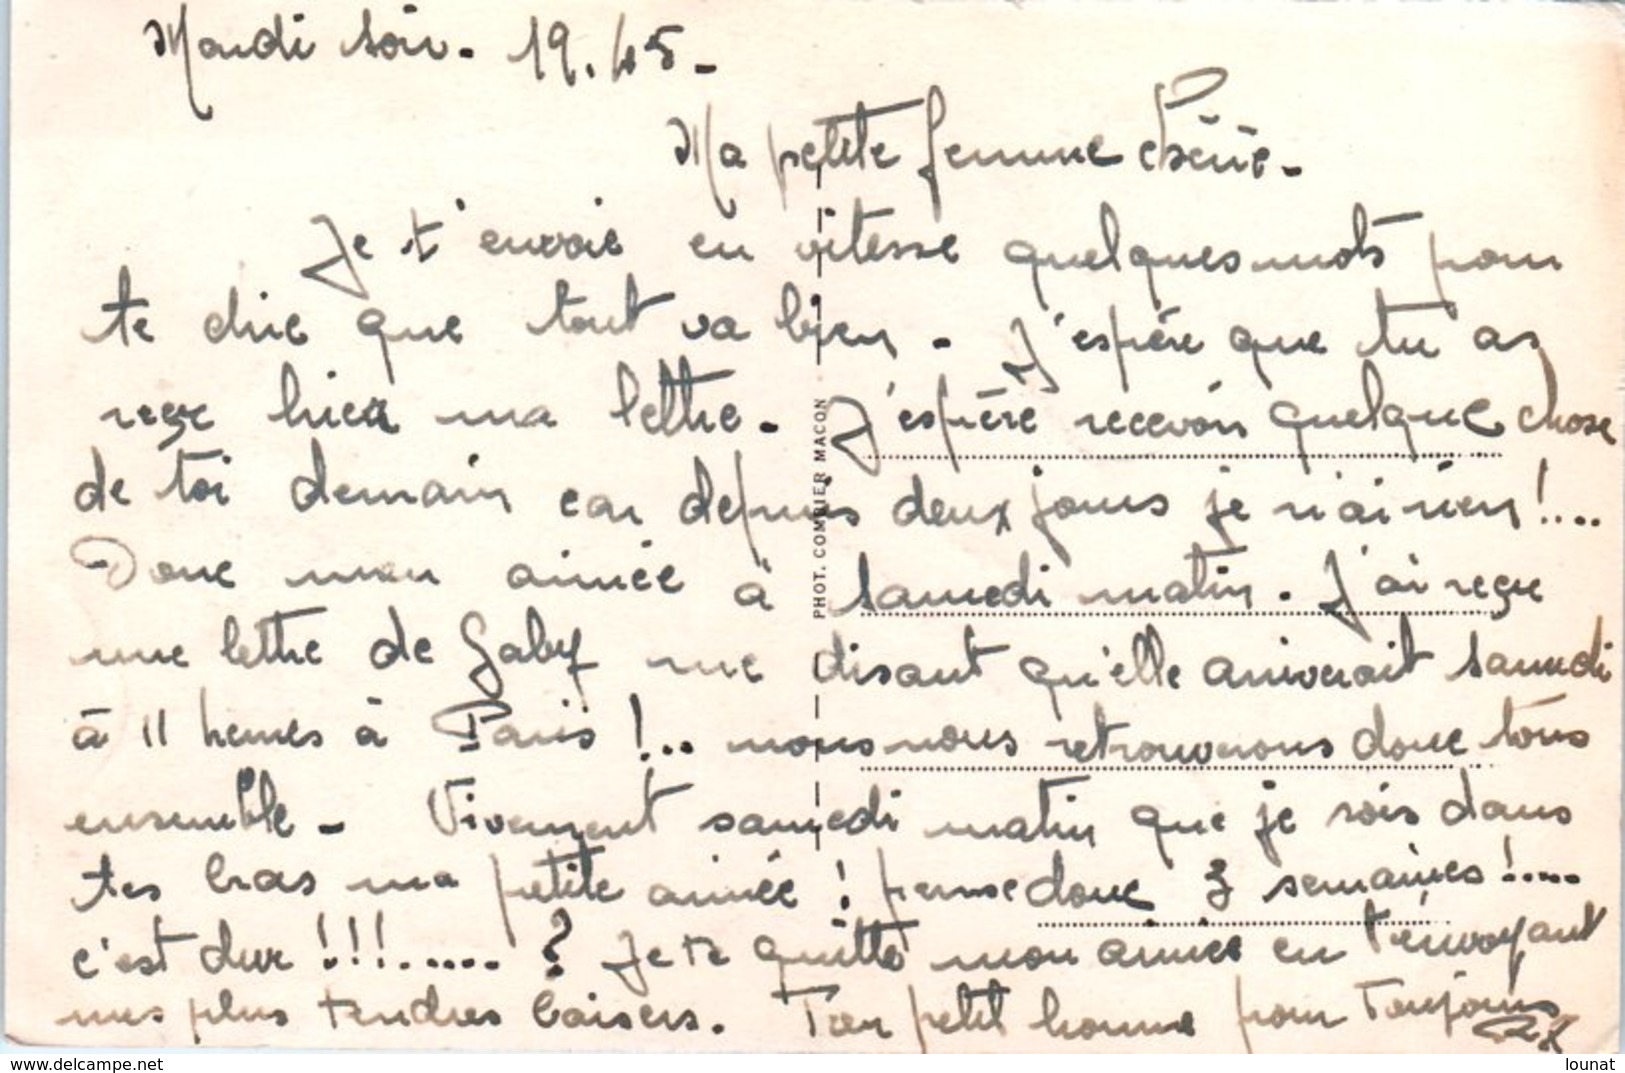 Mardi soir - 19.45 -
Ma petite femme chérie -
Je t'envoie en vitesse quelques mots pour
te dire que tout va bien - J'espère que tu as
reçue hier ma lettre - J'espère recevoir quelque chose
de toi demain car depuis deux jours je n'ai rien !....
Donc mon aimée à samedi matin - J'ai reçu
une lettre de Gaby me disant qu'elle arriverait samedi
à 11 heures à Paris !... nous nous retrouverons donc tous
ensemble - Vivement samedi matin que je sois dans
tes bras ma petite aimée ! pense donc 3 semaines !....
c'est dur !!!..... ? Je te quitte mon aimée en t'envoyant
mes plus tendres baisers. Ton petit homme pour toujours
PHOT. COMBIER MACON
delcampe.net
lounat